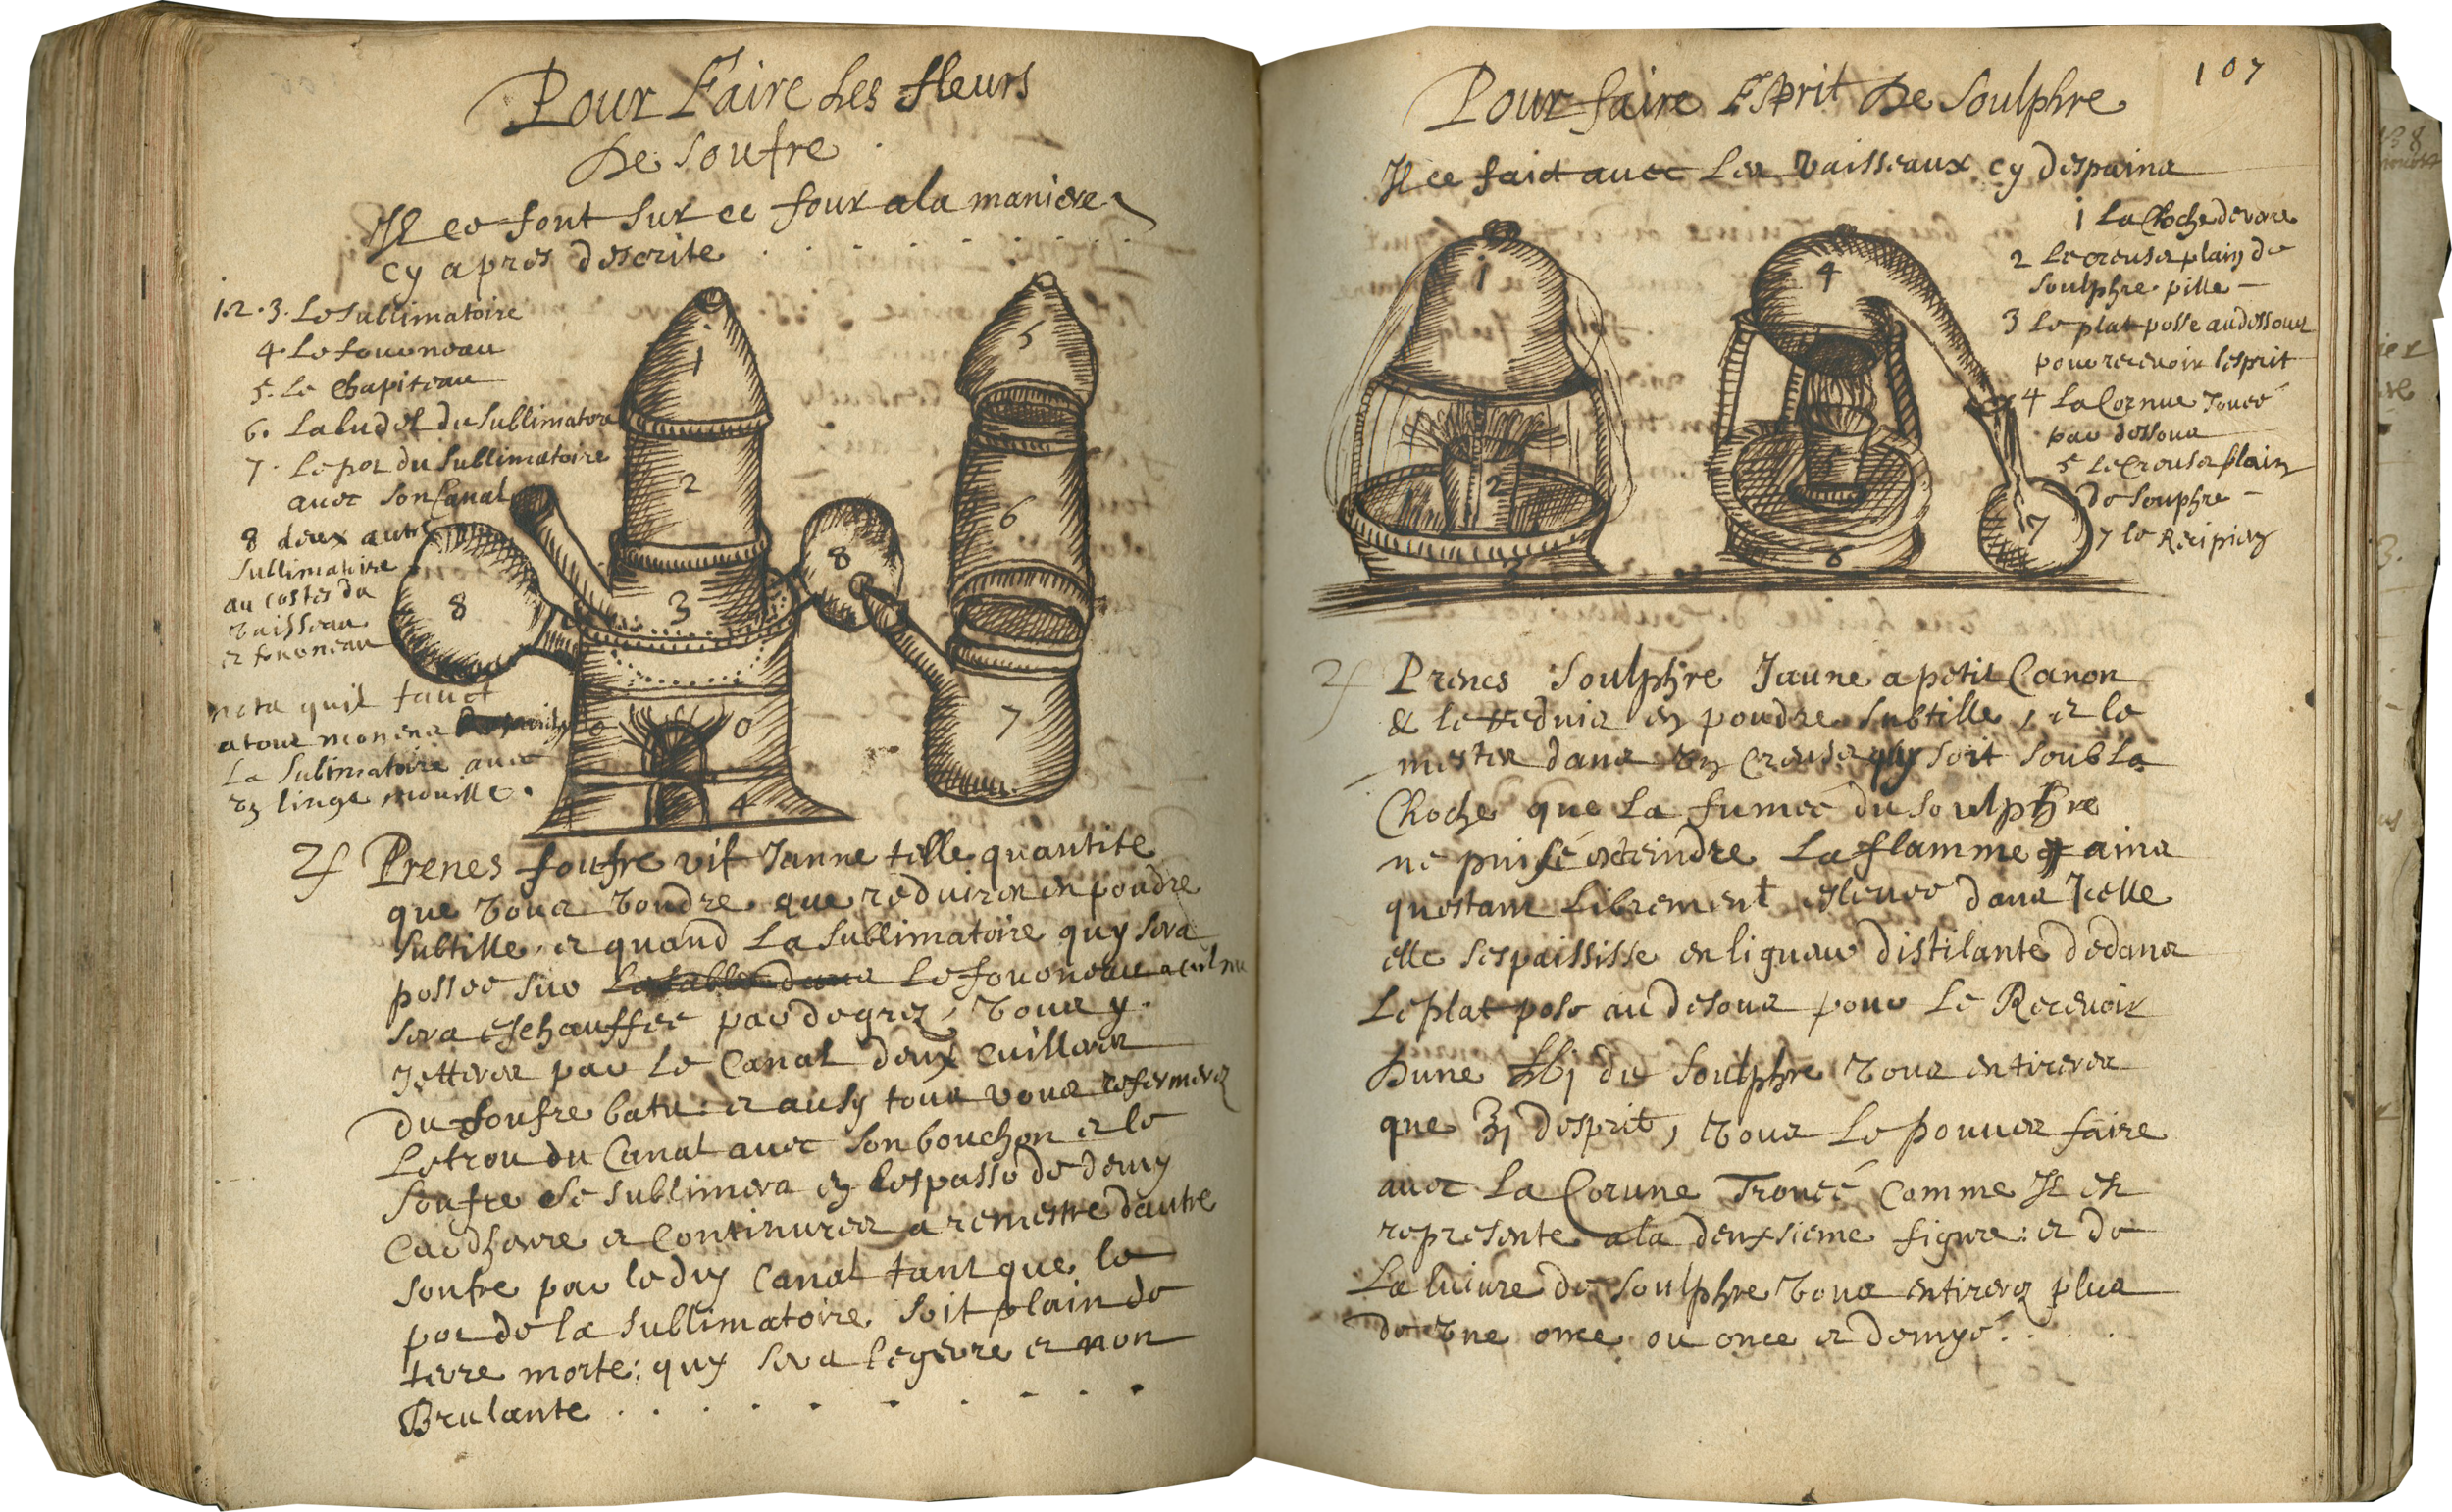 Pour Faire Les fleurs
De Soufre
Il ce font sur ce four a la maniere
cy apres descrite
1.2.3. Le Sublimatoire
4. Le fourneau
5. Le Chapiteau
6. Laludel du Sublimatoire
7. Le pot du Sublimatoire
avec son Canal
8 deux autre
Sublimatoire
au costes du
vaisseau
et fourneau
nota quil faut
a tous momens
La Sublimatoire avec
un linge mouille.
1
2
3
4
5
6
7
8
8
Prenes soufre vif Jaune telle quantite
que vous voudre que reduires en poudre
subtille, et quand La Sublimatoire quy sera
possee sur Le fourneau
sera eschauffee par degrez, vous y
Jetteres par Le Canal deux cuilleres
du soufre batu: et ausy tous vous refermerez
Le trou du Canal avec son bouchon et le
Soufre Se sublimera en lespasse de demy
card heure et continures a remestre dautre
soufre par le dit Canal tant que le
pot de la sublimatoire soit plain de
terre morte: quy sera legerre et non
Brulante
107
Pour faire Esprit De Soulphre
Il ce faict avec Les vaisseaux cy despains
1 La Cloche de verre
2 Le creuset plain de
Soulphre pille
3 Le plat posse au dessous
pour recevoir lesprit
4 La Cornue Trouee
par dessous
5 Le Creuset plain
de Souphre
7 le Recipient
1
2
3
4
6
7
Prenes Soulphre Jaune a petit Canon
& le reduis en poudre subtille, et le
mestes dans un Creuset quy soit soub La
Cloche que La fumee du soulphre
ne puise exteindre La flamme ains
questant Librement eslevee dans Icelle
elle sespaississe en liqueur distilante dedans
Le plat pose au desous pour Le Recevoir
Dune ℔j du Soulphre vous en tireres
que ʒj desprit, vous Le pouves faire
avec La Corune Trouée Comme Il est
represente a la deuxsieme figure: et de
La livre de Soulphre vous en tirerez plus
de une once ou once et demye.